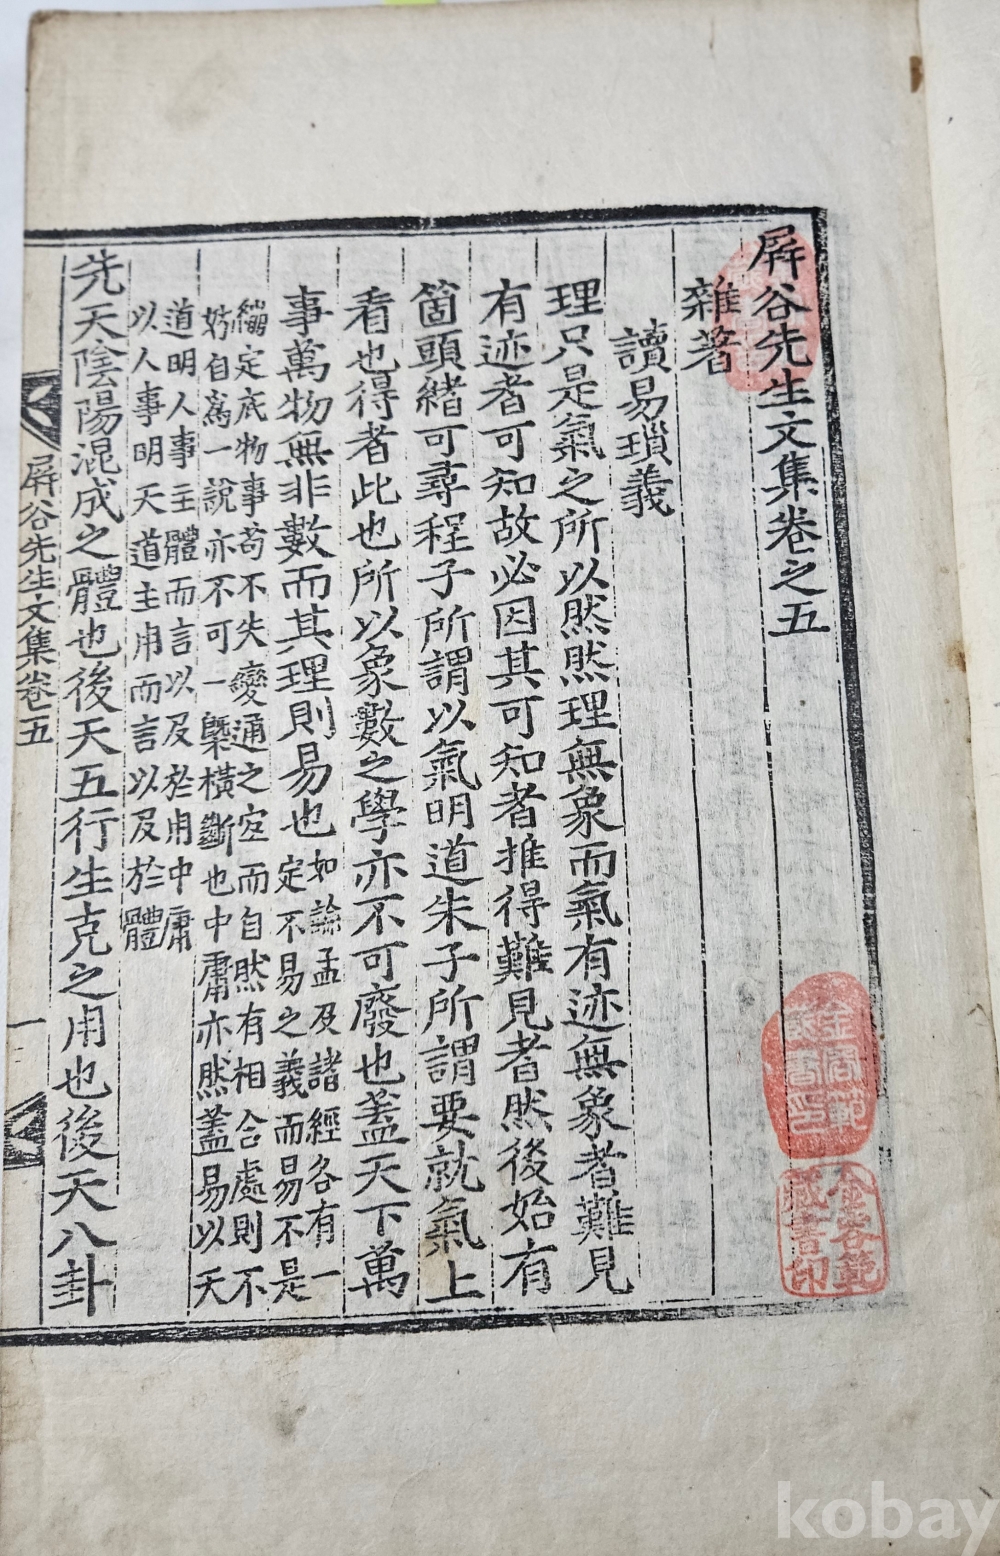 屛谷先生文集卷之五
雜著
讀易瑣義
理只是氣之所以然然理無象而氣有迹無象者難見
有迹者可知故必因其可知者推得難見者然後始有
箇頭緖可尋程子所謂以氣明道朱子所謂要就氣上
看也得者此也所以象數之學亦不可廢也盖天下萬
事萬物無非數而其理則易也如論孟及諸經各有一
定不易之義而易不是
繃定底物事苟不失變通之宜而自然有相合處則不
妨自爲一說亦不可一槩橫斷也中庸亦然盖易以天
道明人事主體而言以及於用中庸
以人事明天道主用而言以及於體
先天陰陽混成之體也後天五行生克之用也後天八卦
屛谷先生文集卷五
一
金容範
藏書印
kobay